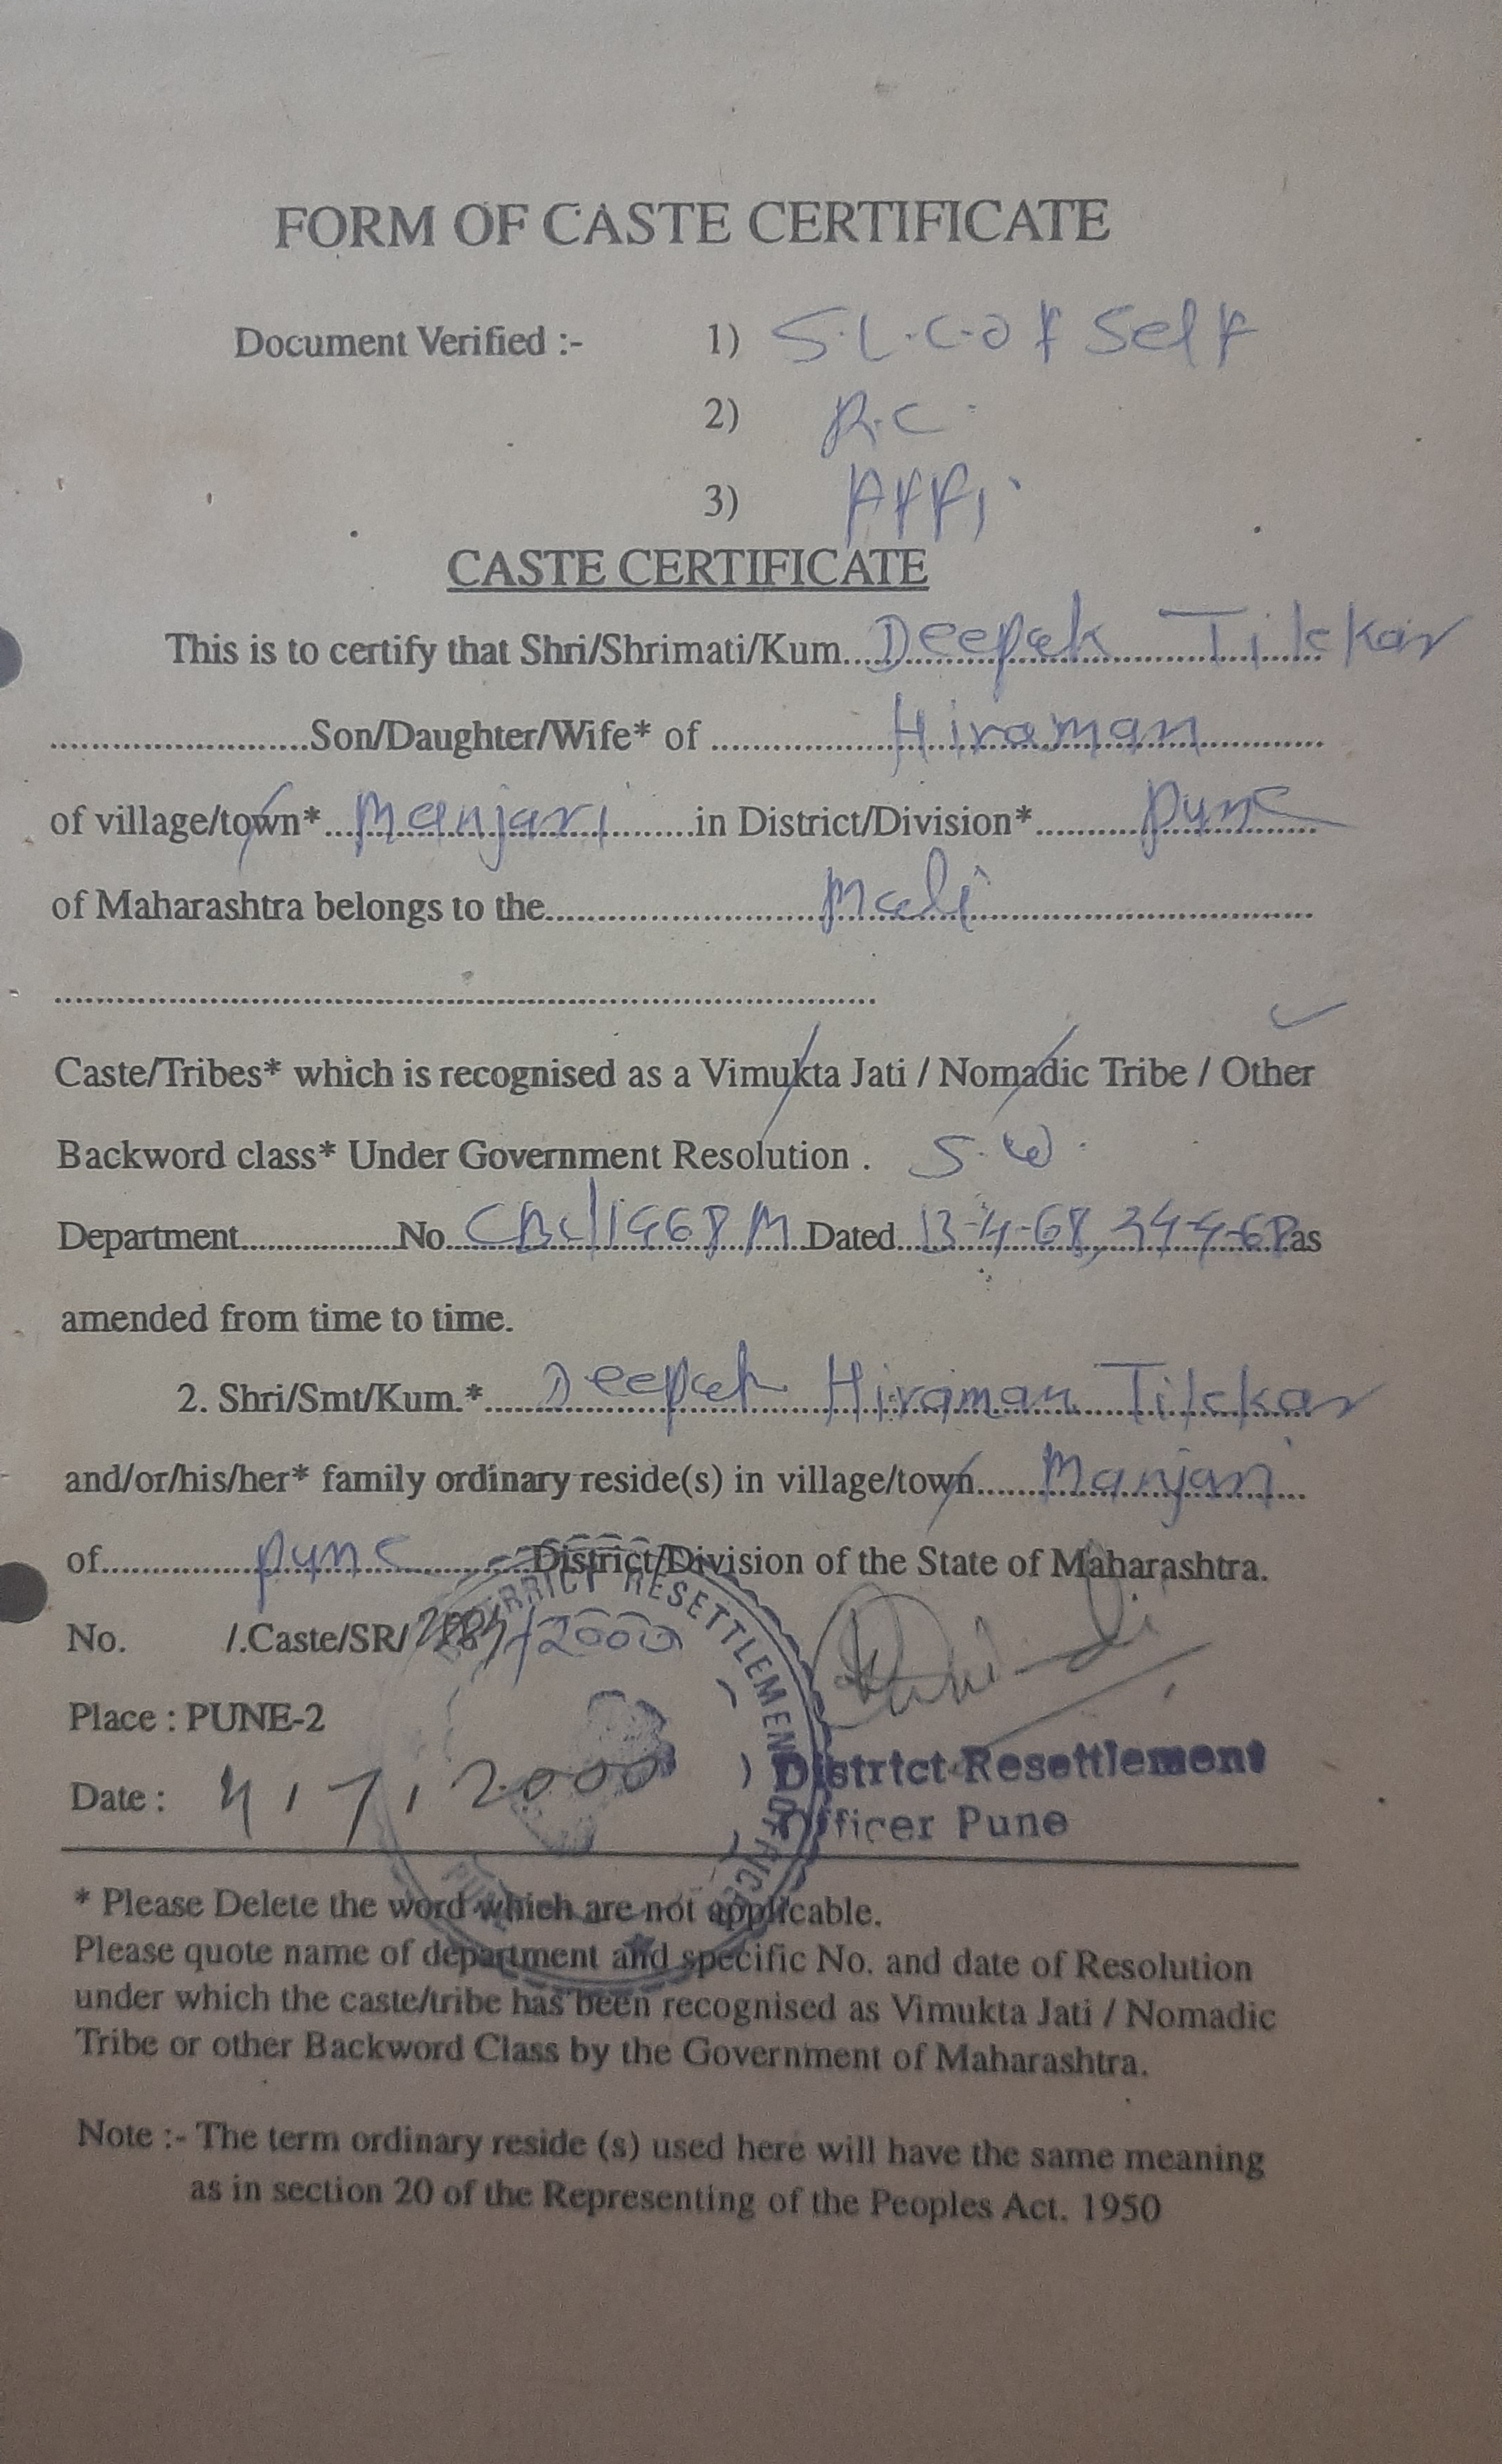 FORM OF CASTE CERTIFICATE
Document Verified :- 1) S.L.C. of Self
2) R.C.
3) Affi.
CASTE CERTIFICATE
This is to certify that Shri/Shrimati/Kum....Deepak Tilekar
........................Son/Daughter/Wife* of ................Hiraman............
of village/town* ...Manjari........in District/Division*..........Pune
of Maharashtra belongs to the..........................Mali..............................
................................................................................
Caste/Tribes* which is recognised as a Vimukta Jati / Nomadic Tribe / Other
Backword class* Under Government Resolution . S.W.
Department................No...CBC/1468 M..Dated...13-4-68, as
amended from time to time.
2. Shri/Smt/Kum.*......Deepak Hiraman Tilekar
and/or/his/her* family ordinary reside(s) in village/town......Manjari...
of...............Pune............District/Division of the State of Maharashtra.
No. /.Caste/SR/ /2000
DISTRICT RESETTLEMENT OFFICER
PUNE
Place : PUNE-2
Date : 4/7/2000
District Resettlement
Officer Pune
* Please Delete the word which are not applicable.
Please quote name of department and specific No. and date of Resolution
under which the caste/tribe has been recognised as Vimukta Jati / Nomadic
Tribe or other Backword Class by the Government of Maharashtra.
Note :- The term ordinary reside (s) used here will have the same meaning
as in section 20 of the Representing of the Peoples Act. 1950